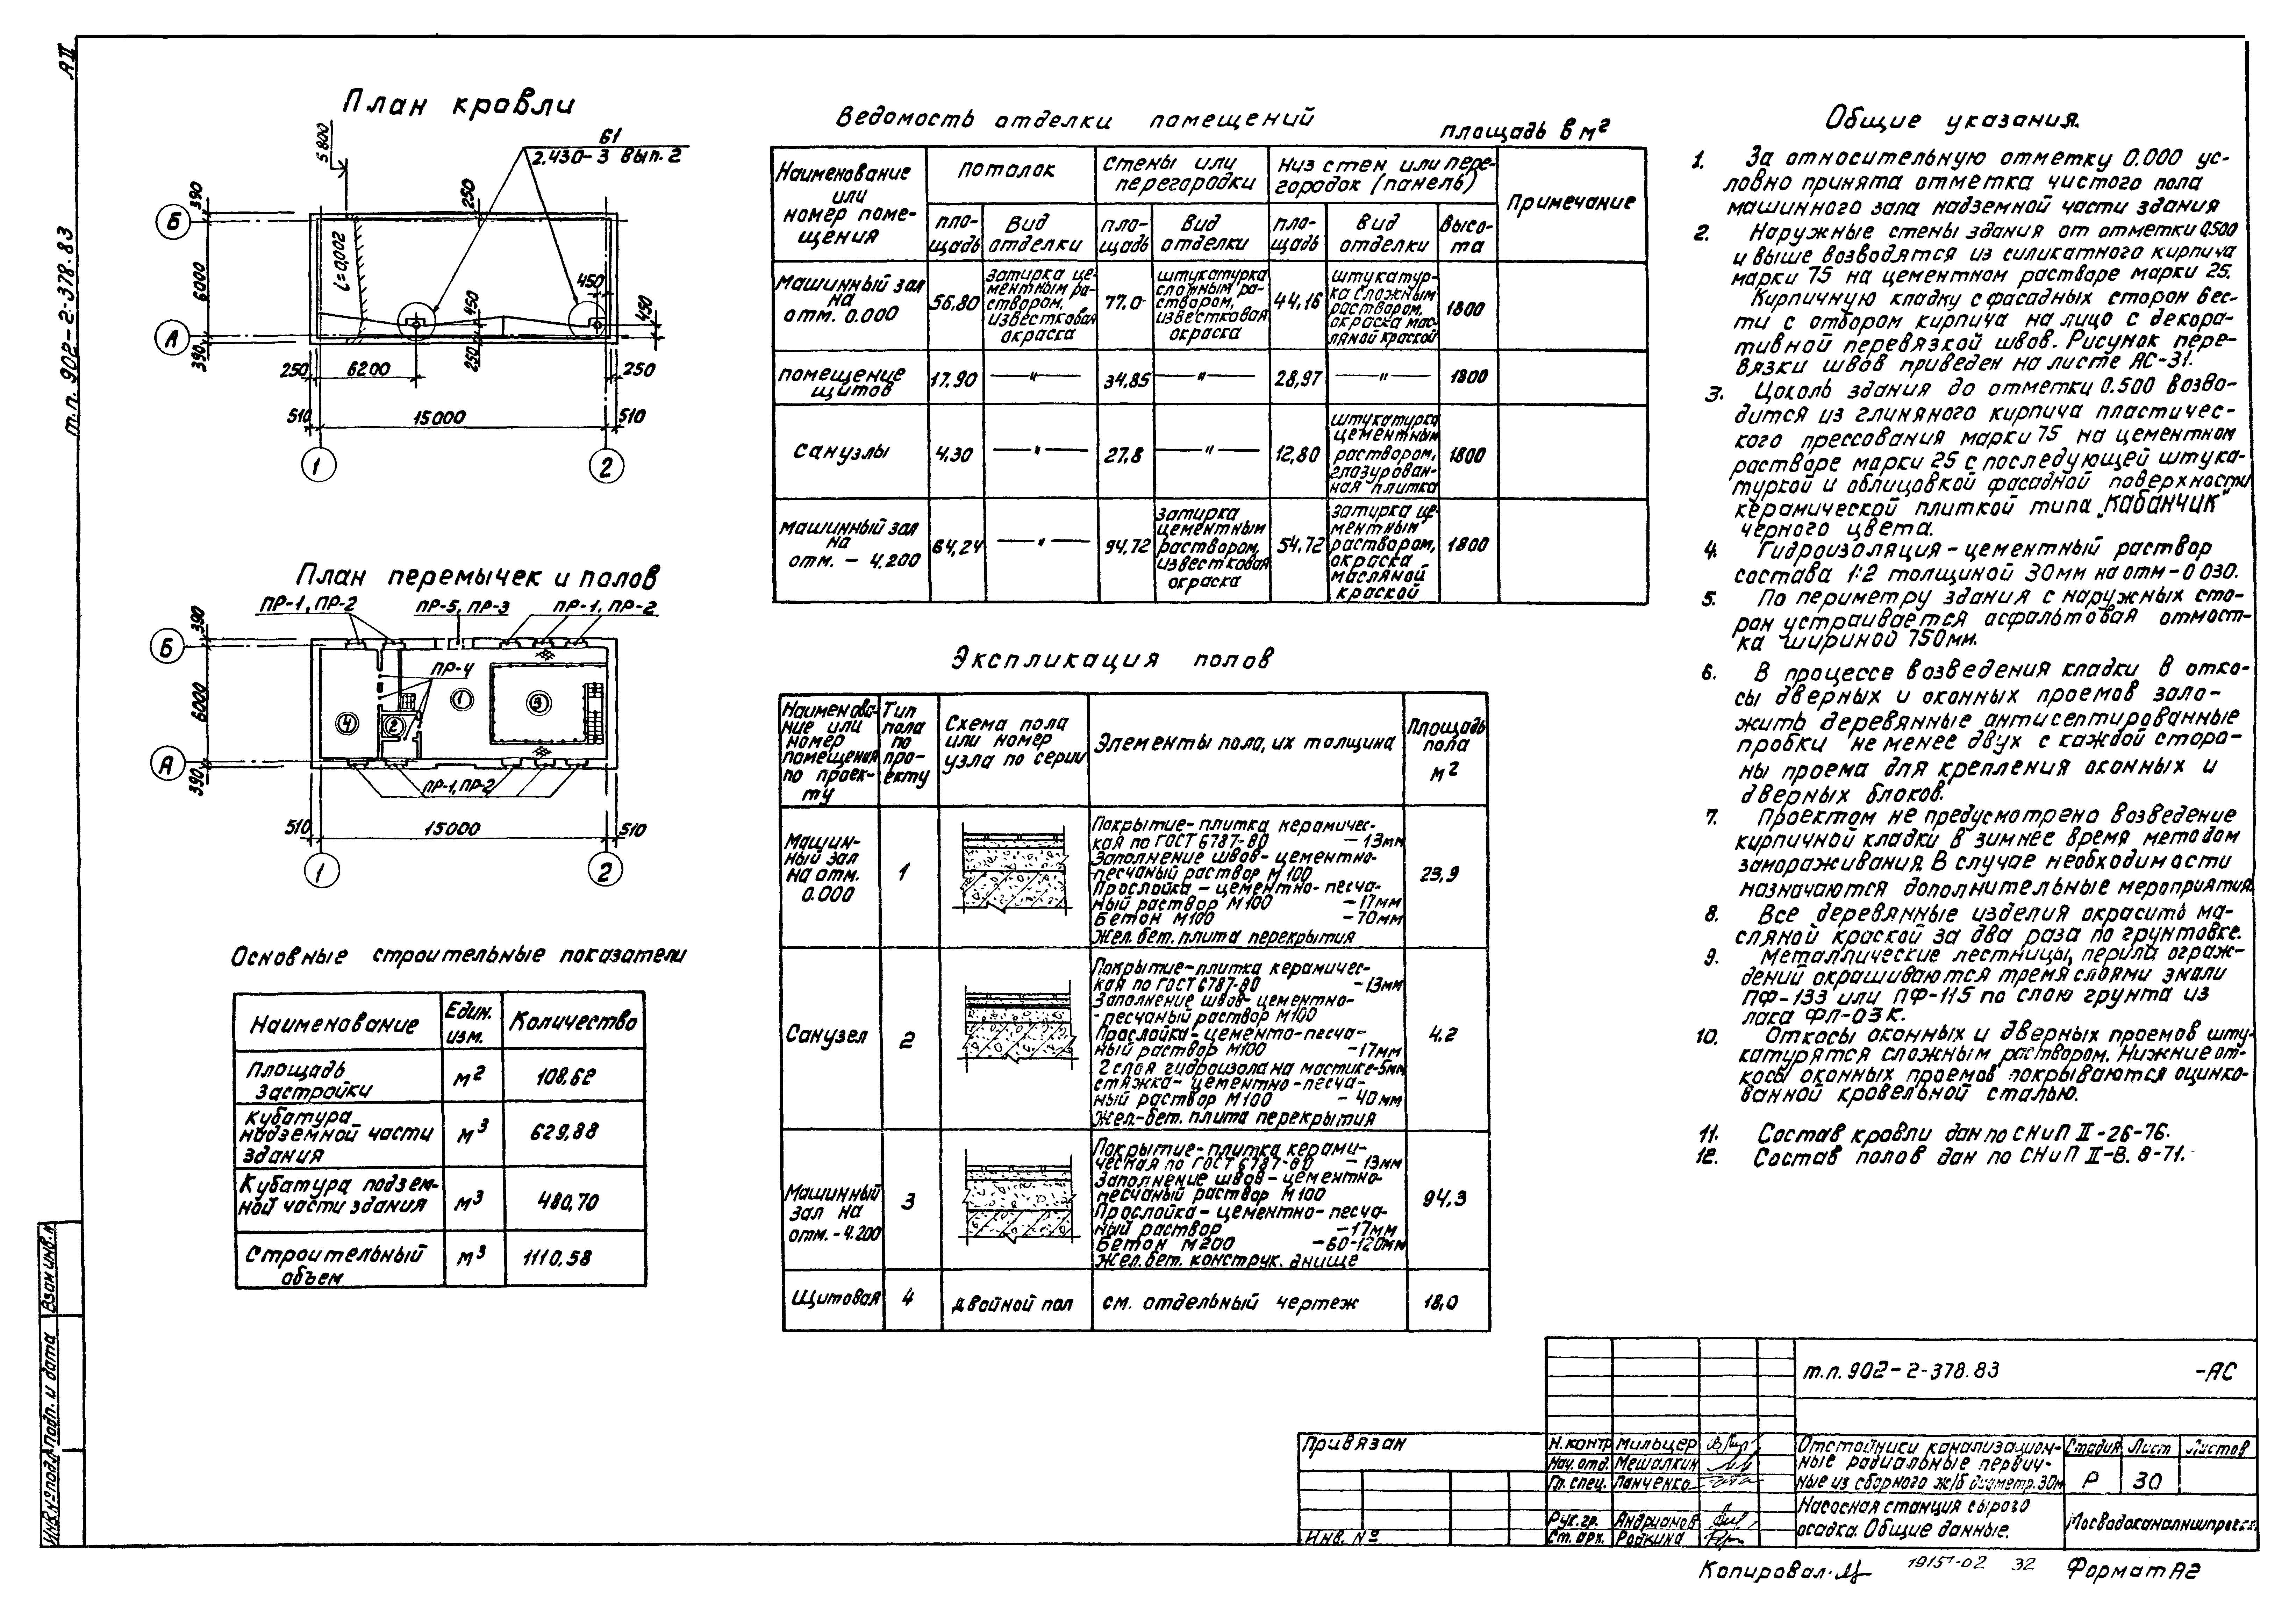 АII
т.п. 902-2-378.83
План кровли
5800
61
2.430-3 вып. 2
390
250
Б
6000
i=0,002
450
450
450
А
390
250
6200
250
250
510
15000
510
1
2
План перемычек и полов
ПР-1, ПР-2
ПР-5, ПР-3
ПР-1, ПР-2
390
Б
ПР-4
6000
1
3
4
2
А
390
ПР-1, ПР-2
510
15000
510
1
2
Основные строительные показатели
Наименование
Един. изм.
Количество
Площадь застройки
м2
108,62
Кубатура надземной части здания
м3
629,88
Кубатура подземной части здания
м3
480,70
Строительный объем
м3
1110,58
Ведомость отделки помещений
площадь в м2
Наименование или номер помещения
Потолок
Стены или перегородки
Низ стен или перегородок (панель)
Примечание
пло-щадь
Вид отделки
пло-щадь
Вид отделки
пло-щадь
Вид отделки
Высо-та
Машинный зал на отм. 0.000
56,80
затирка це-ментным ра-створом, известковая окраска
77.0
штукатурка сложным ра-створом, известковая окраска
44,16
штукатур-ка сложным раствором, окраска мас-ляной краской
1800
помещение щитов
17.90
— " —
34,85
— " —
28,97
— " —
1800
Санузлы
4.30
— " —
27.8
— " —
12,80
штукатурка цементным раствором, глазурован-ная плитка
1800
Машинный зал на отм. - 4.200
64,24
— " —
94,72
затирка цементным раствором, известковая окраска
54,72
затирка це-ментным раствором, окраска масляной краской
1800
Экспликация полов
Наименова-ние или номер помещения по проек-ту
Тип пола по про-екту
Схема пола или номер узла по серии
Элементы пола, их толщина
Площадь пола м2
Машин-ный зал на отм. 0.000
1
Покрытие-плитка керамичес-
кая по ГОСТ 6787-80 -13мм
Заполнение швов-цементно-
песчаный раствор М100
Прослойка-цементно-песча-
ный раствор М100 -17мм
Бетон М100 -70мм
Жел.бет. плита перекрытия
23,9
Санузел
2
Покрытие-плитка керамичес-
кая по ГОСТ 6787-80 -13мм
Заполнение швов-цементно-
-песчаный раствор М100
Прослойка-цементо-песча-
ный раствор М100 -17мм
2 слоя гидроизола на мастике-5мм
стяжка-цементно-песча-
ный раствор М100 -40мм
Жел-бет. плита перекрытия
4.2
Машинный зал на отм.-4.200
3
Покрытие-плитка керами-
ческая по ГОСТ 6787-80 -13мм
Заполнение швов-цементно-
песчаный раствор М100
Прослойка-цементно-песча-
ный раствор -17мм
Бетон М200 -60-120мм
Жел.бет. конструк. днище
94,3
Щитовая
4
двойной пол
см. отдельный чертеж
18,0
Общие указания.
1. За относительную отметку 0.000 ус-
ловно принята отметка чистого пола
машинного зала надземной части здания
2. Наружные стены здания от отметки 0.500
и выше возводятся из силикатного кирпича
марки 75 на цементном растворе марки 25.
Кирпичную кладку с фасадных сторон вес-
ти с отбором кирпича на лицо с декора-
тивной перевязкой швов. Рисунок пере-
вязки швов приведен на листе АС-31.
3. Цоколь здания до отметки 0.500 возво-
дится из глиняного кирпича пластичес-
кого прессования марки 75 на цементном
растворе марки 25 с последующей штука-
туркой и облицовкой фасадной поверхности
керамической плиткой типа „Кабанчик"
черного цвета.
4. Гидроизоляция-цементный раствор
состава 1:2 толщиной 30мм на отм-0 030.
5. По периметру здания с наружных сто-
рон устраивается асфальтовая отмост-
ка шириной 750мм.
6. В процессе возведения кладки в отко-
сы дверных и оконных проемов зало-
жить деревянные антисептированные
пробки не менее двух с каждой сторо-
ны проема для крепления оконных и
дверных блоков.
7. Проектом не предусмотрено возведение
кирпичной кладки в зимнее время методом
замораживания. В случае необходимости
назначаются дополнительные мероприятия.
8. Все деревянные изделия окрасить ма-
сляной краской за два раза по грунтовке.
9. Металлические лестницы, перила ограж-
дений окрашиваются тремя слоями эмали
ПФ-133 или ПФ-115 по слою грунта из
лака ФЛ-03К.
10. Откосы оконных и дверных проемов шту-
катурятся сложным раствором. Нижние от-
косы оконных проемов покрываются оцинко-
ванной кровельной сталью.
11. Состав кровли дан по СНиП II-26-76.
12. Состав полов дан по СНиП II-В. 8-71.
Взам инв. №
Подп. и дата
Инв. № подл.
Привязан
Инв. №
Н.контр Мильцер
Нач. отд. Мешалкин
Гл. спец. Панченко
Рук. гр. Андрианов
Ст. арх. Родкина
т.п. 902-2-378.83 -АС
Отстойники канализацион-
ные радиальные первич-
ные из сборного ж/б диаметр. 30м
Стадия Лист Листов
Р 30
Насосная станция сырого
осадка. Общие данные.
Мосводоканалниипроект
Копировал.
19157-02 32
Формат А2